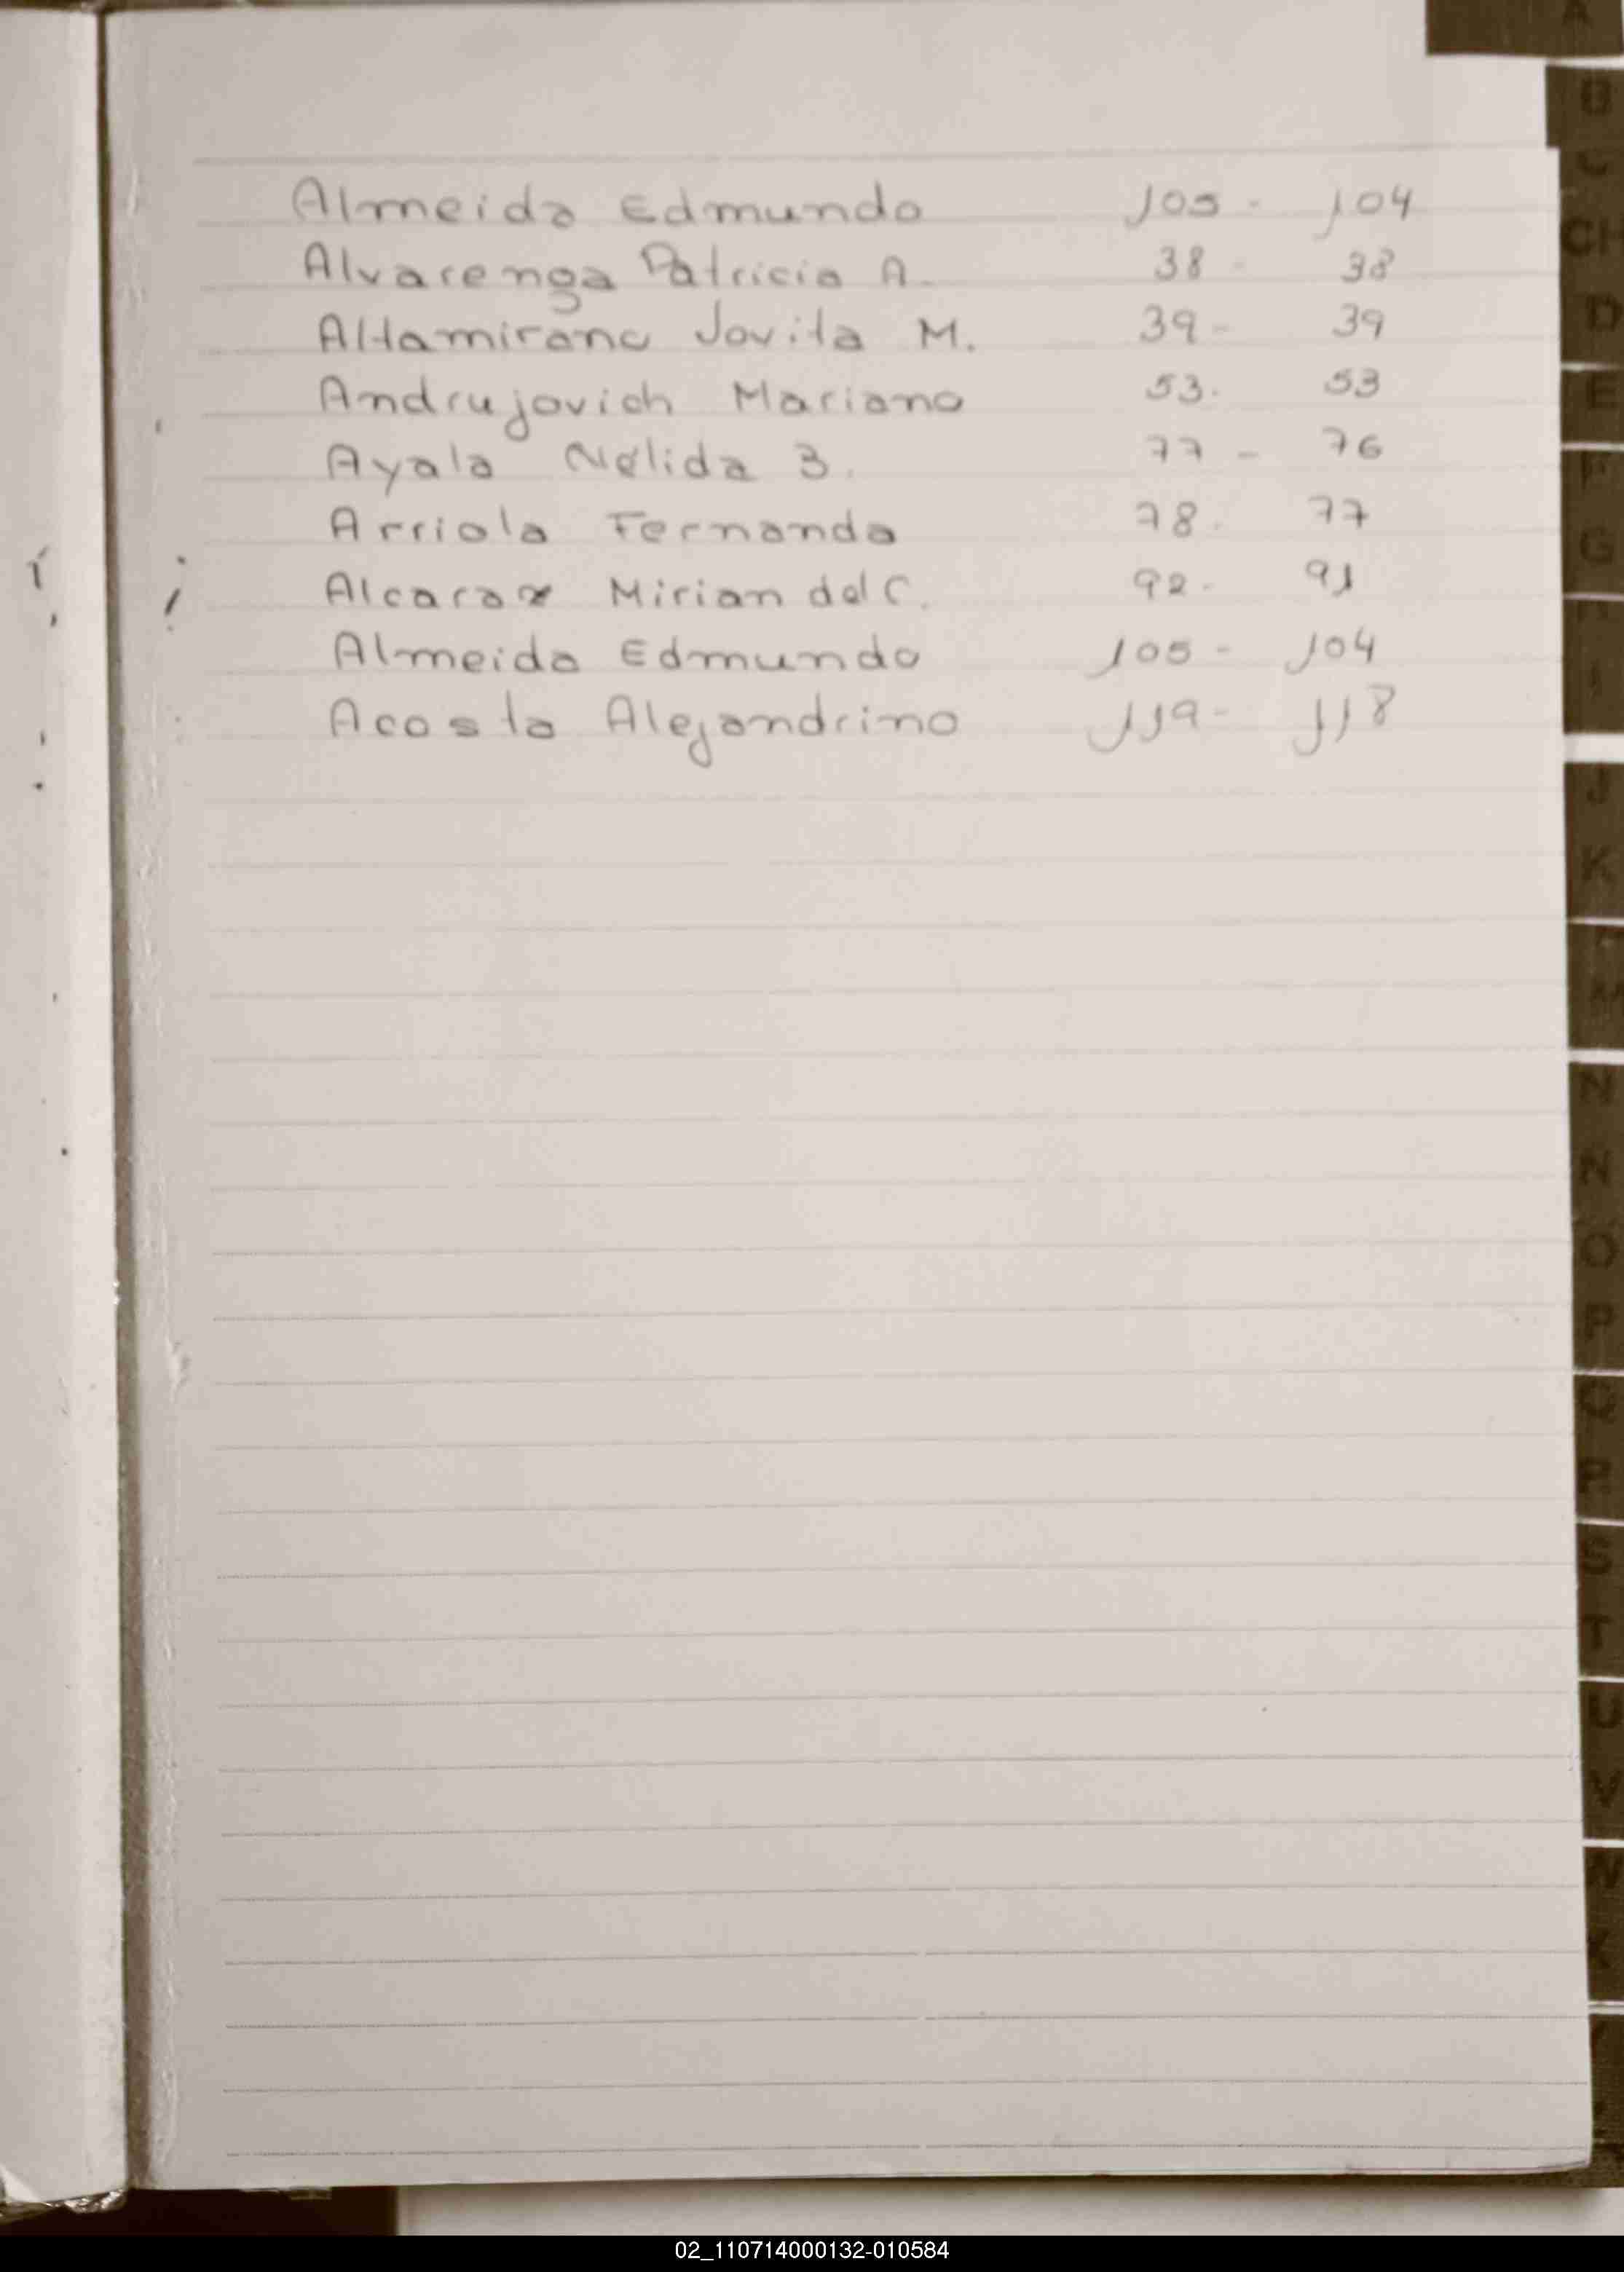 A
B
C
CH
D
E
F
G
I
J
K
M
N
N
O
P
Q
R
S
T
U
V
W
X
Almeida Edmundo 105 - 104
Alvarenga Patricia A. 38 - 38
Altamirano Jovita M. 39 - 39
Andrujovich Mariano 53. 53
Ayala Nélida B. 77 - 76
Arriola Fernando 78. 77
Alcaraz Mirian del C. 92 - 91
Almeida Edmundo 105 - 104
Acosta Alejandrino 119 - 118
02_110714000132-010584